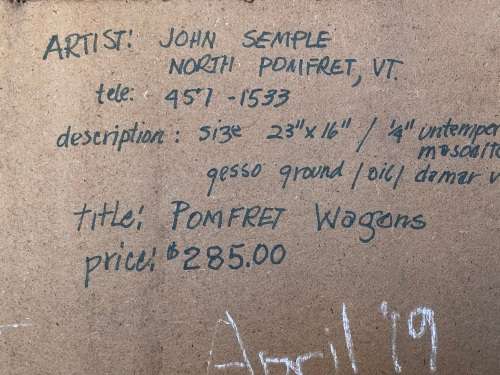 ARTIST: JOHN SEMPLE
NORTH POMFRET, VT.
tele: 457-1533
description: size 23"x16" / 1/4" untemper
masonite
gesso ground / oil / damar v
title: POMFRET Wagons
price: $285.00
April '79